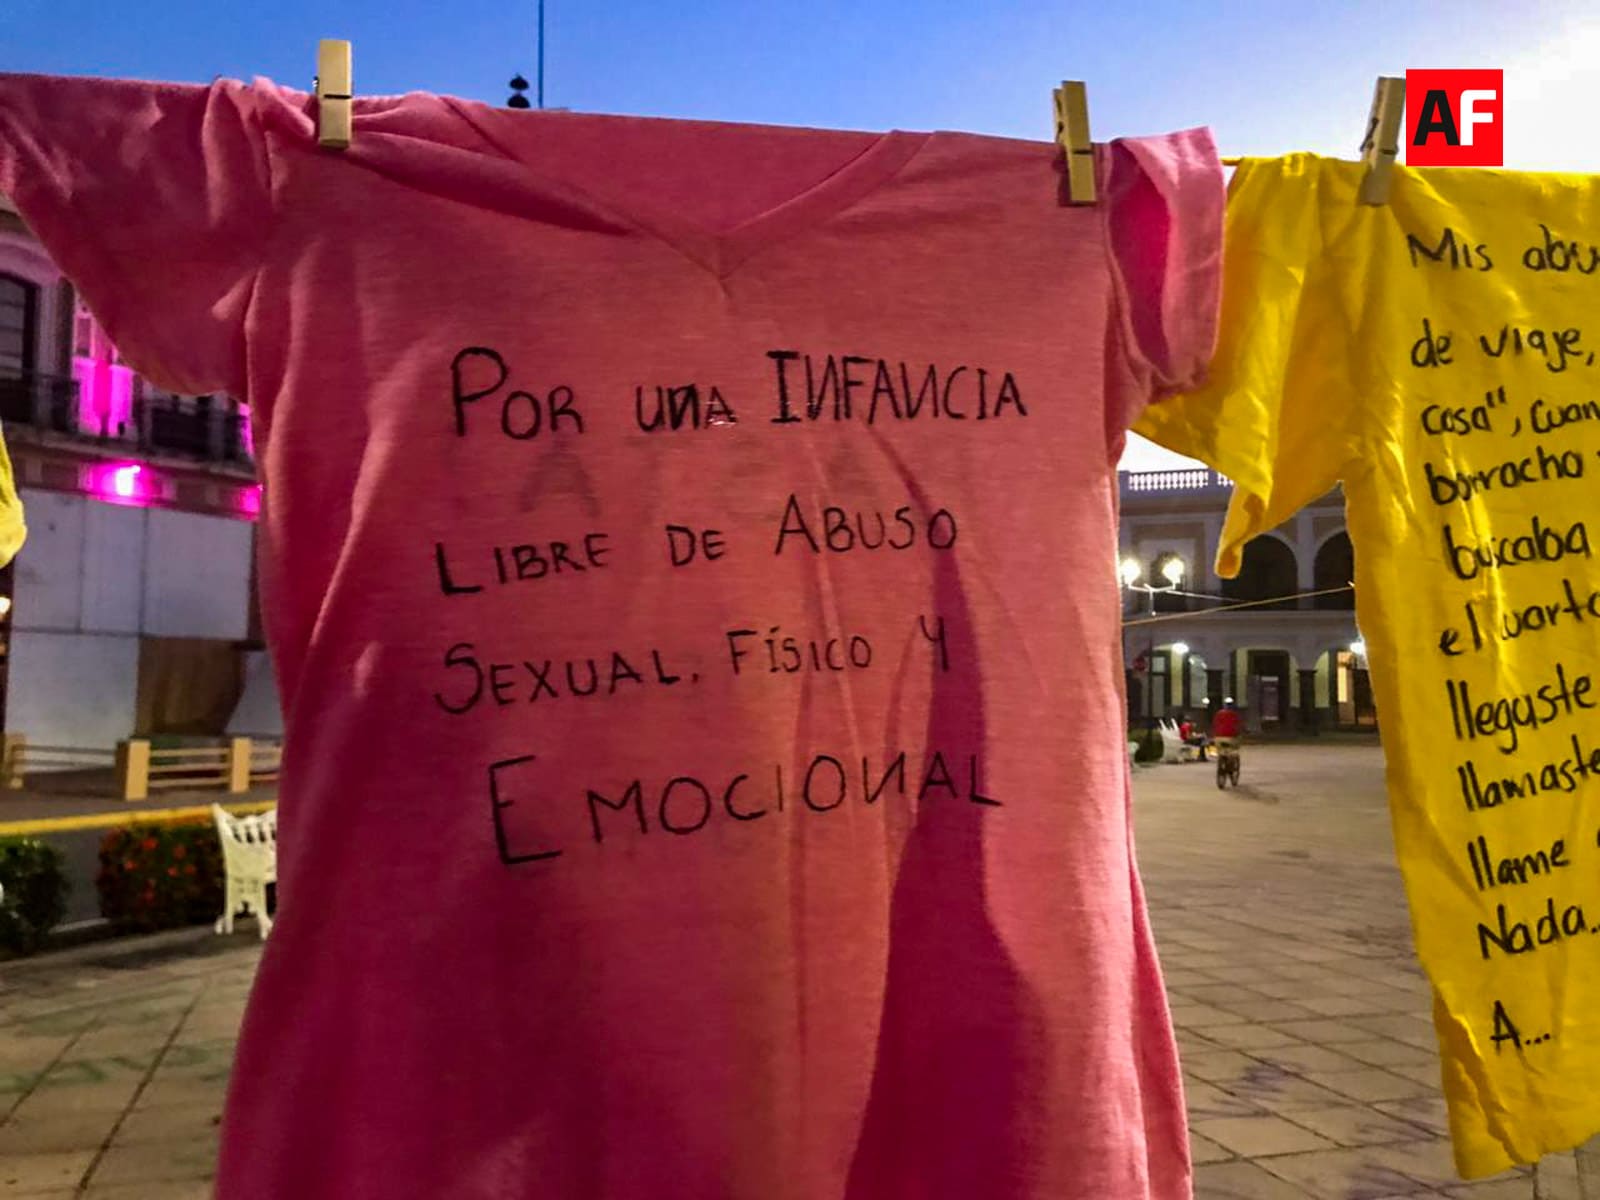 AF
POR UNA INFANCIA
LIBRE DE ABUSO
SEXUAL, FÍSICO Y
EMOCIONAL
Mis
de viaje,
casa",
borracho
buscaba
el
llegaste
llamaste
llame
Nada..
A...